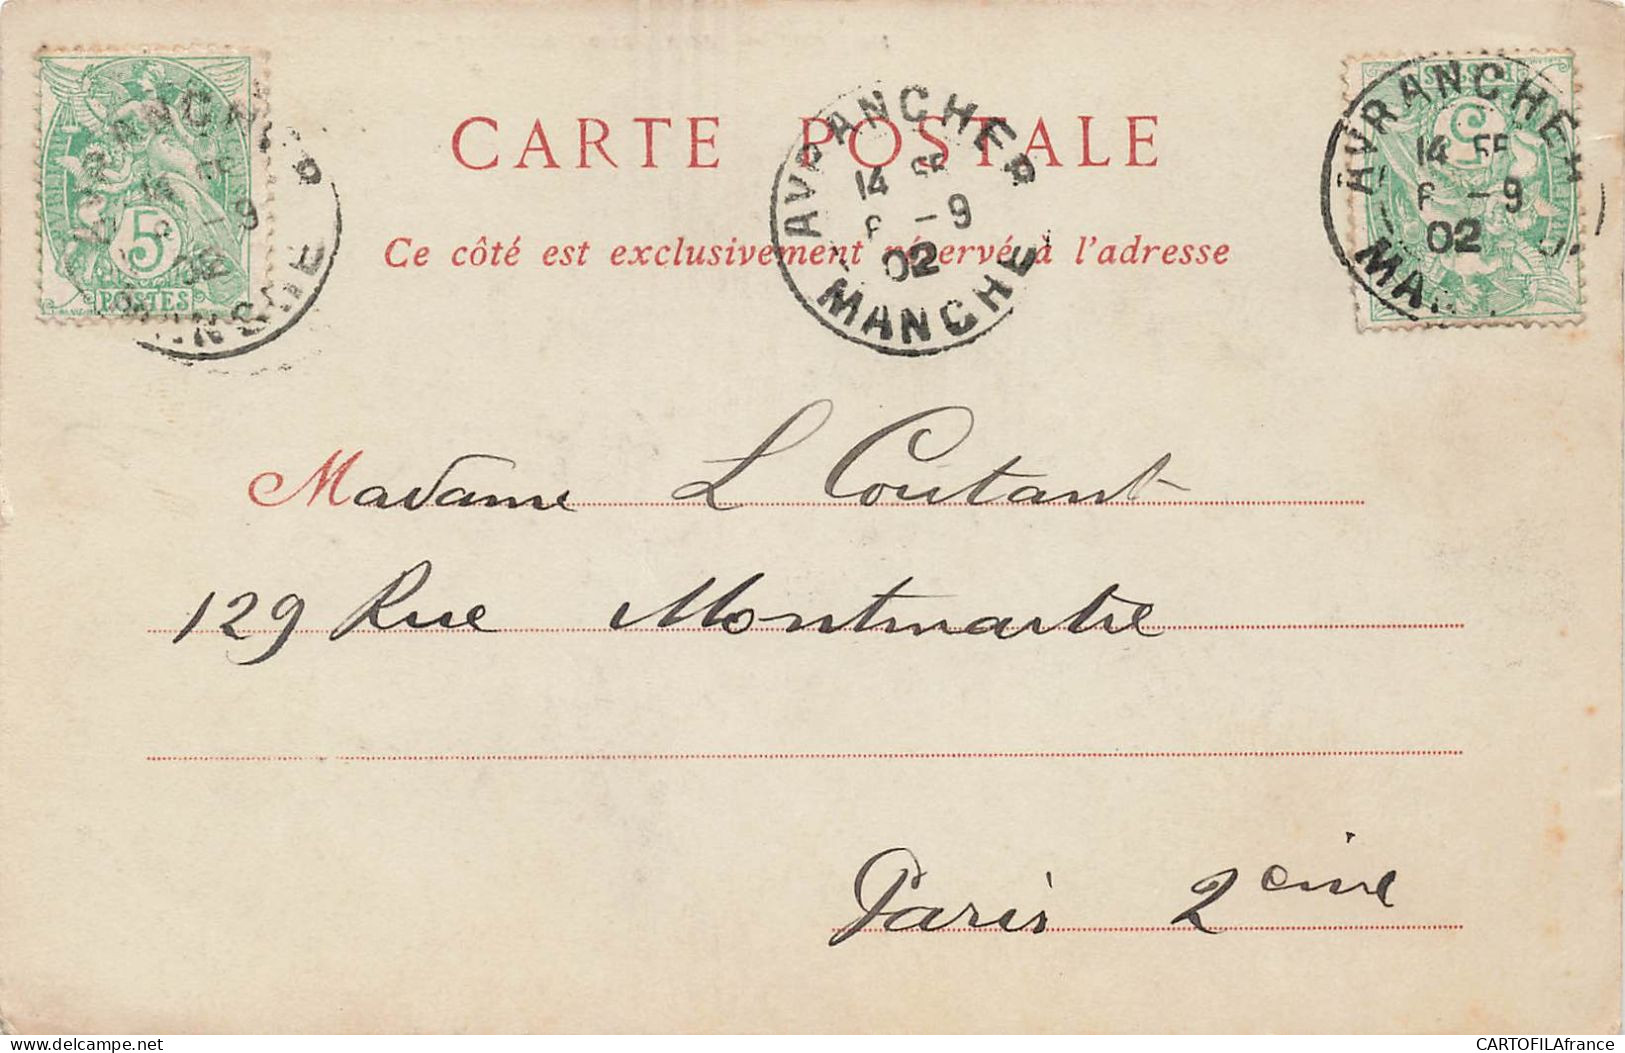 CARTE POSTALE
Ce côté est exclusivement réservé à l'adresse
5c
POSTES
AVRANCHES
14
-9
02
MANCHE
AVRANCHES
14
-9
02
Madame L Coutant
129 Rue Montmartre
Paris 2eme
delcampe.net
CARTOFILAfrance